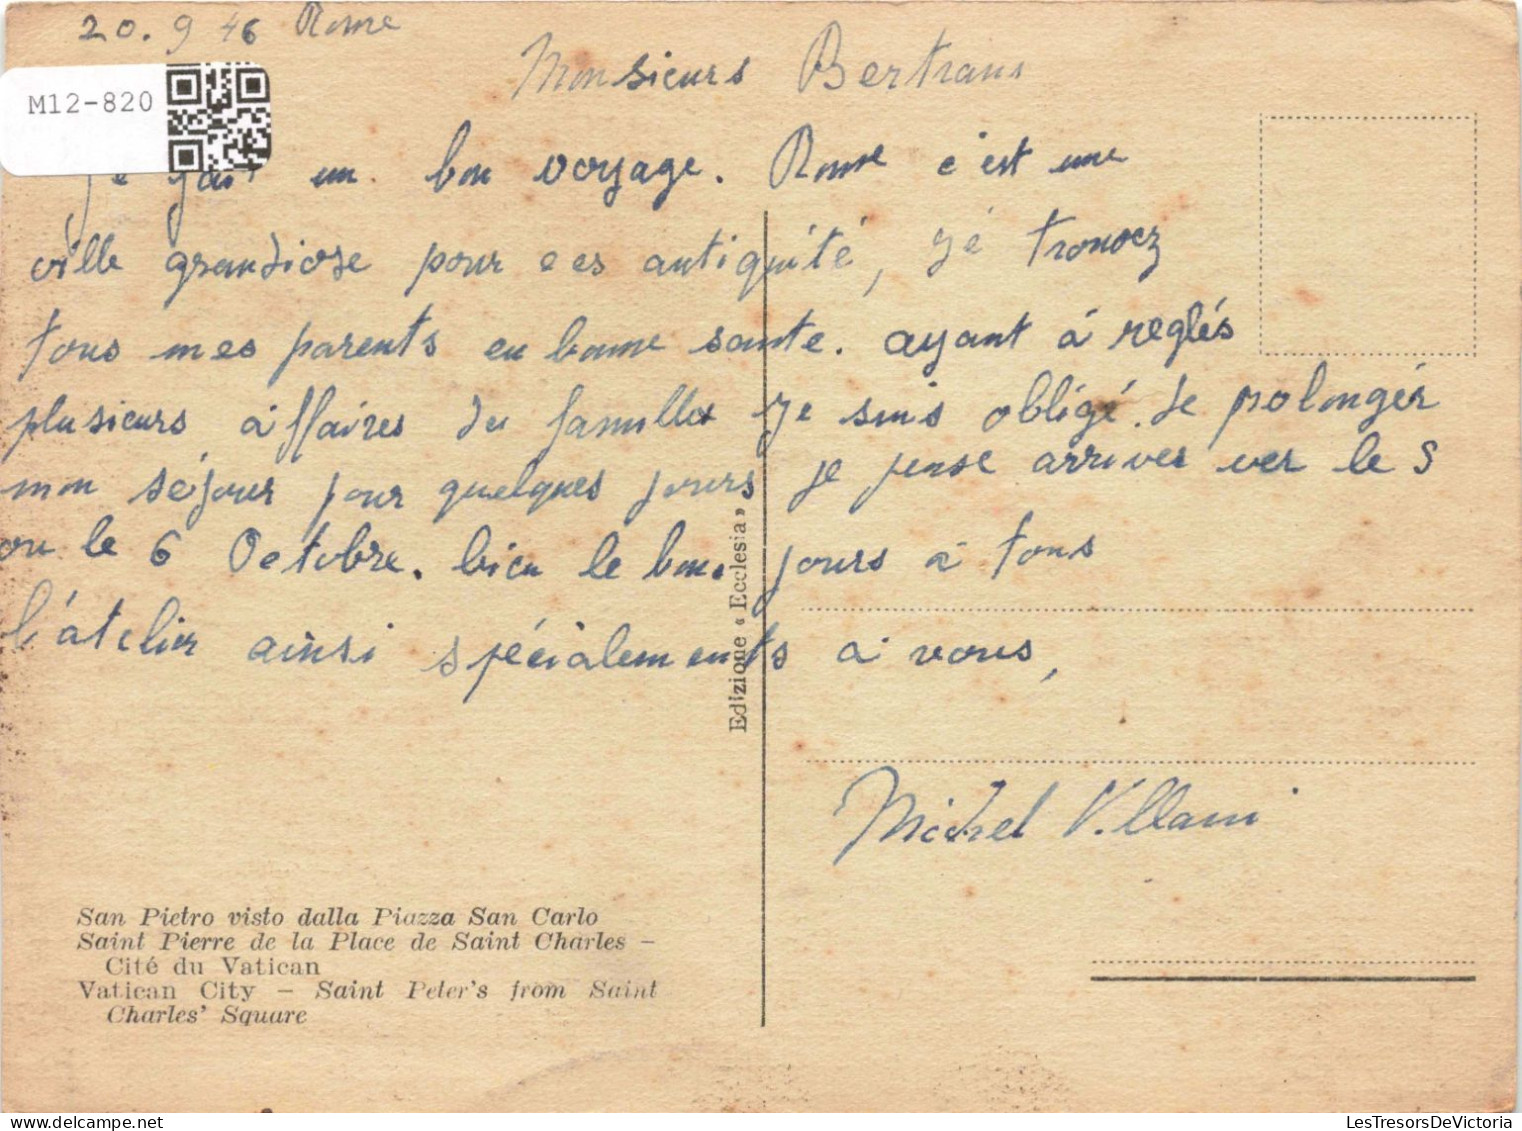 20. 9 46 Rome
Monsieurs Bertrans
M12-820
Je fait un bon voyage. Rome c'est une
ville grandiose pour ces antiquité, jé trouvez
tous mes parents en bonne sante. ayant á reglés
plusieurs áffaires de familles je suis obligé de polongér
mon séjour pour quelques jours je pense arriver ver le 5
ou le 6 Octobre. bien le bon. jours à tous
l'átelier ainsi spécialements a vous,
Michel Villani
Edizione « Ecclesia »
San Pietro visto dalla Piazza San Carlo
Saint Pierre de la Place de Saint Charles –
Cité du Vatican
Vatican City – Saint Peter's from Saint
Charles' Square
LesTresorsDeVictoria